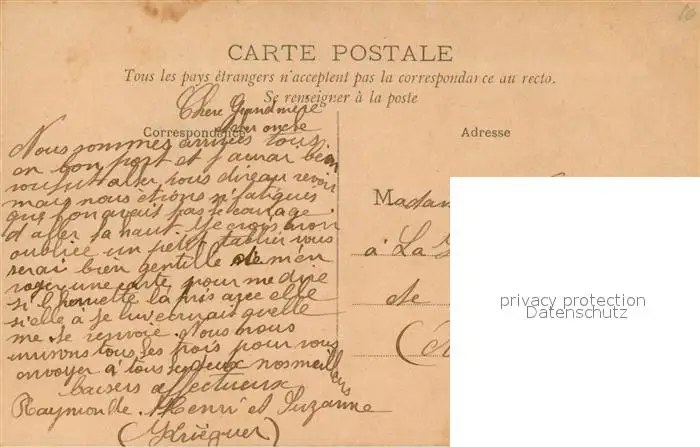 CARTE POSTALE
Tous les pays étrangers n'acceptent pas la correspondance au recto.
Se renseigner à la poste
Correspondance
Adresse
Chere Grandmère
cher oncle
Nous sommes arrivés tous
en bon port et j'aurai bien
voulut aller vous dire au revoir
mais nous étions si fatigués
que l'on avait pas le courage
d'aller la haut. Je crois avoir
oubliée un petit tablier vous
serai bien gentille de m'en
voyer une carte pour me dire
si Henriette la pris avec elle
si elle à je lui ecrirait quelle
me le renvoie. Nous nous
unirons tous les trois pour vous
envoyer à tous deux nos meilleurs
baisers affectueux
Raymonde. Henri et Suzanne
Madam
à La
de
privacy protection
Datenschutz